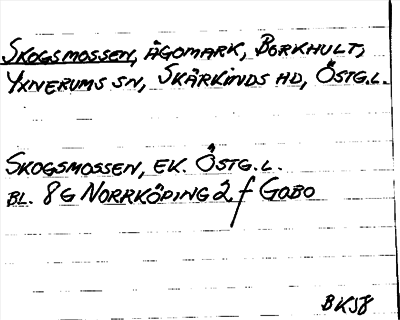 SKOGSMOSSEN, ÄGOMARK, BORKHULT,
YXNERUMS SN, SKÄRKINDS HD, ÖSTG.L.
SKOGSMOSSEN, EK. ÖSTG.L.
BL. 8G NORRKÖPING 2 f GOBO
BK58